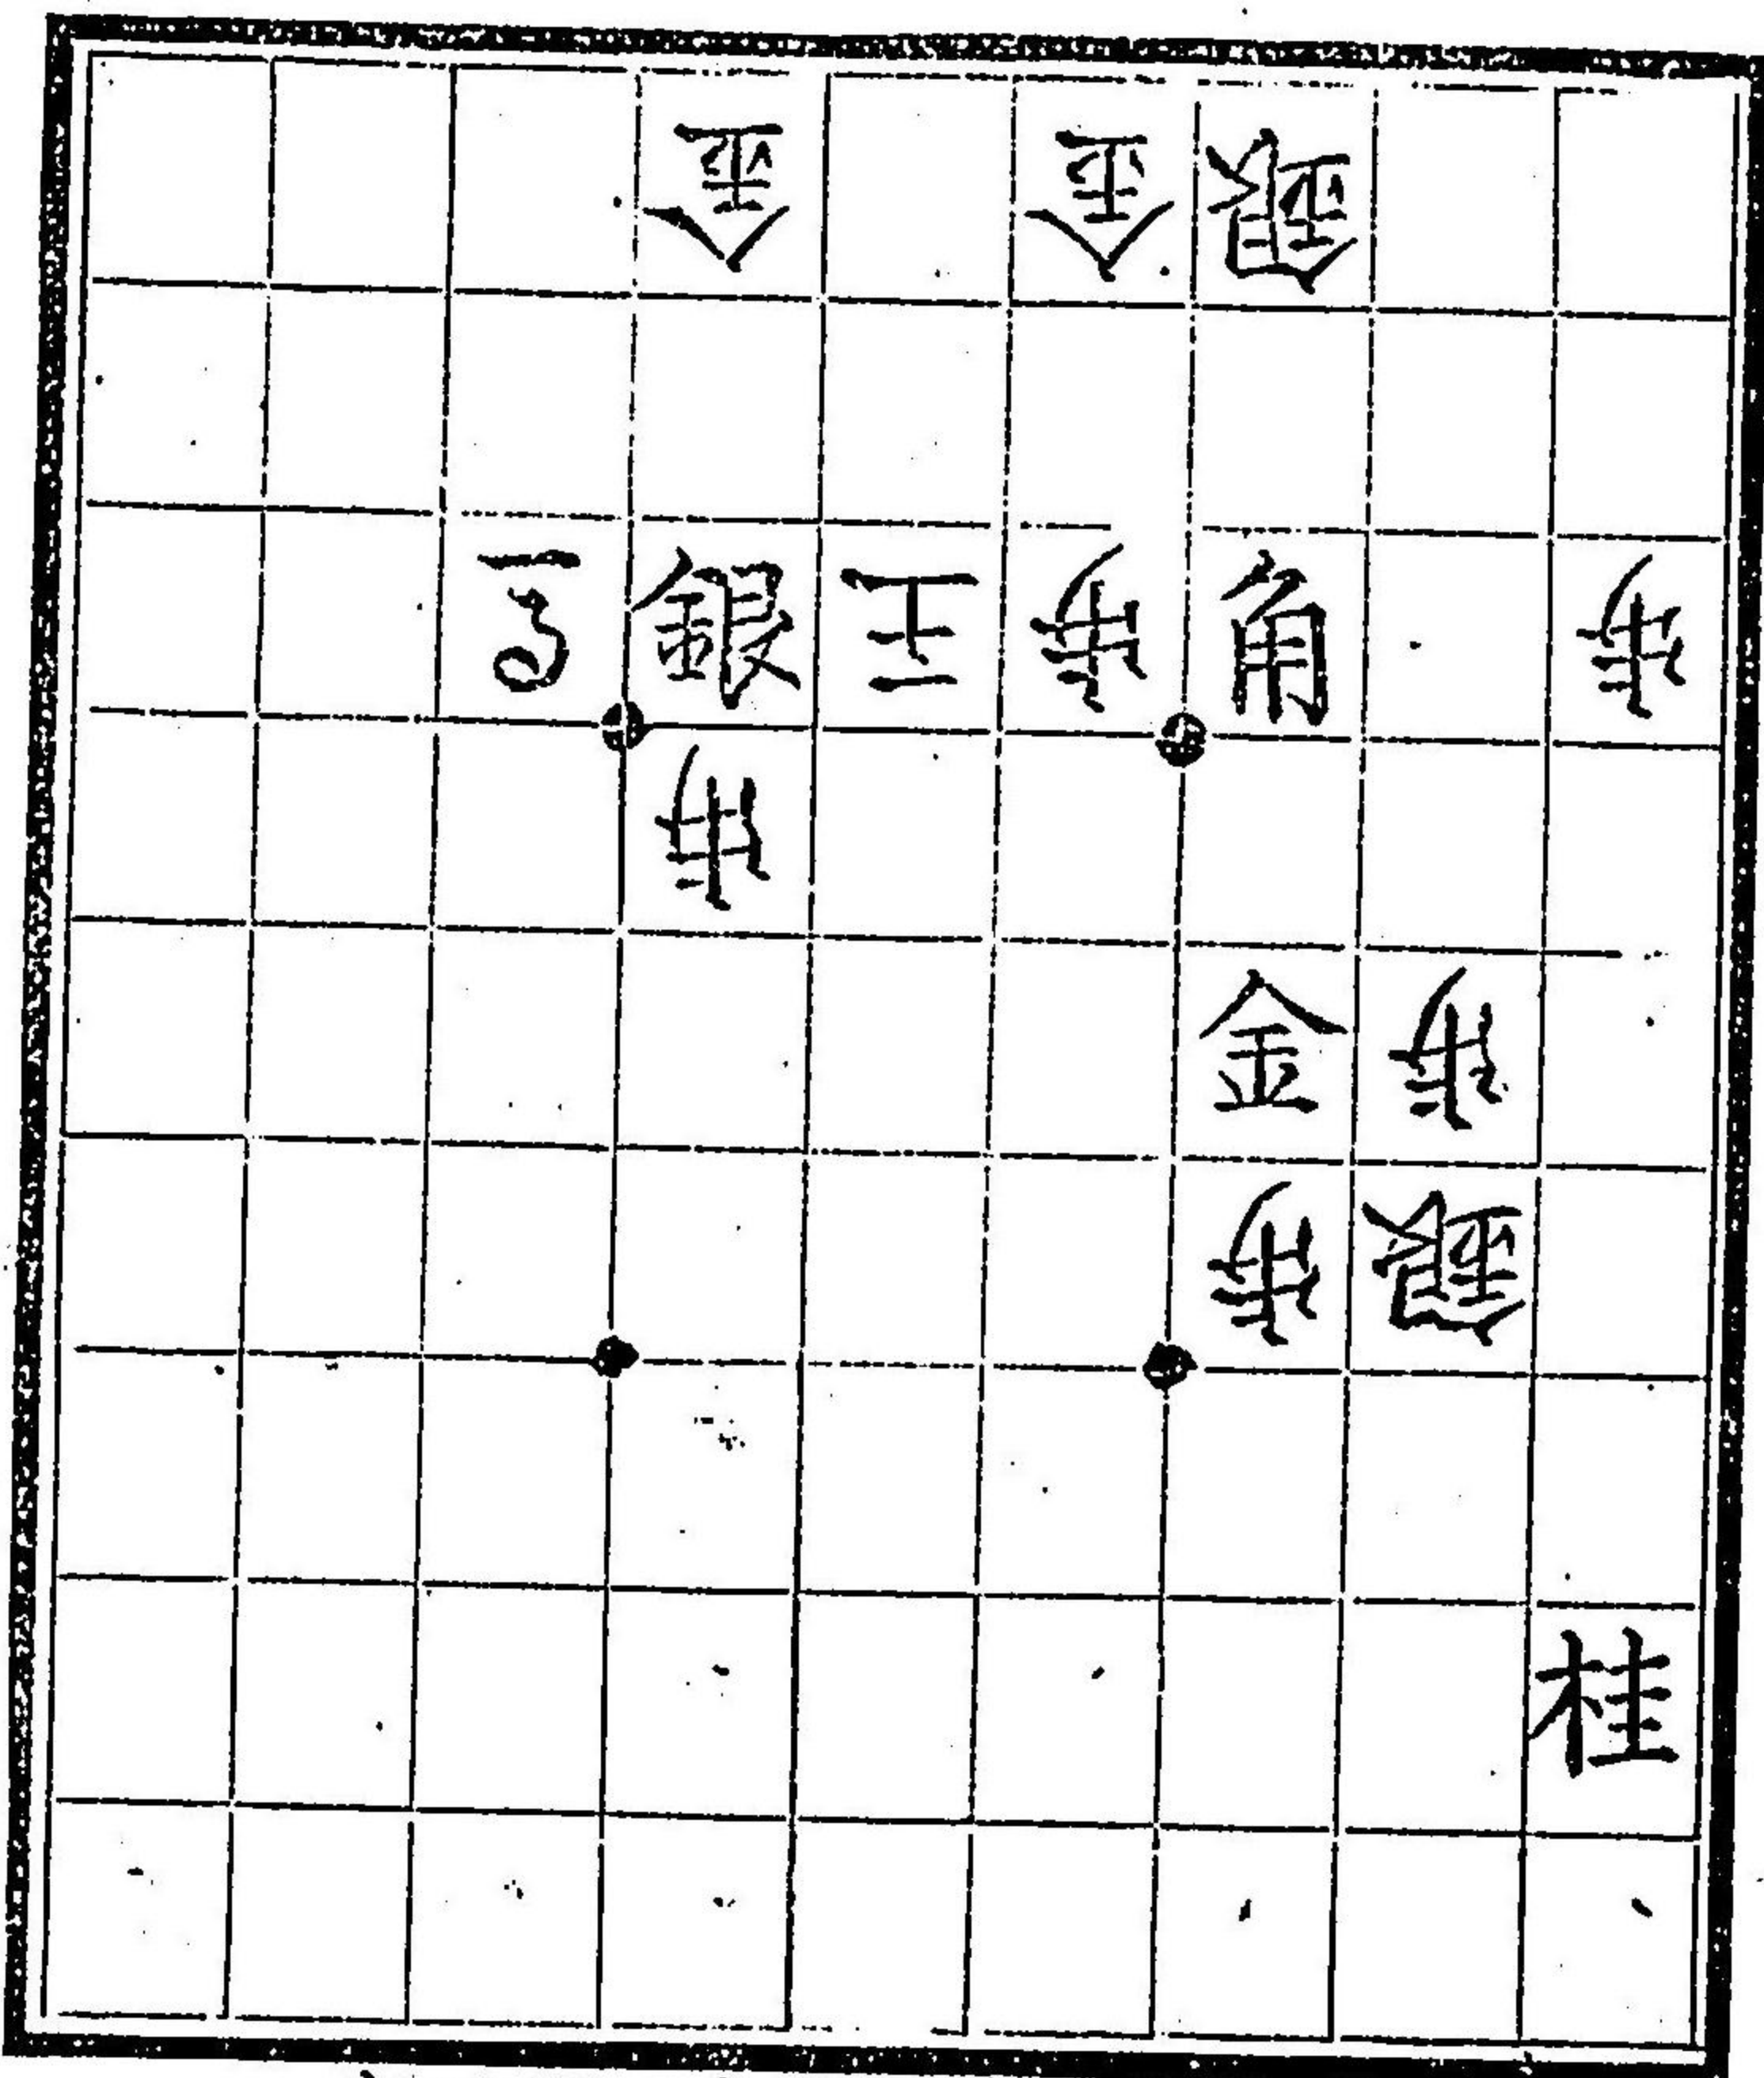 金 金 銀
馬 銀 王 歩 角 歩
歩
金 歩
歩 銀
桂